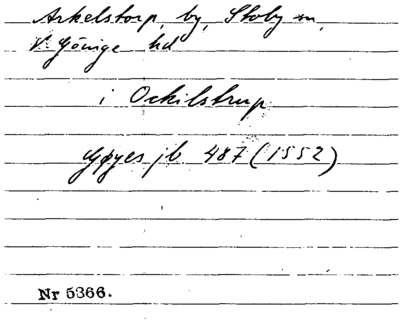 Arkelstorp, by, Stoby sn,
V. Göinge hd
i Ockilstrup
Gøyes jb 487 (1552)
Nr 5366.